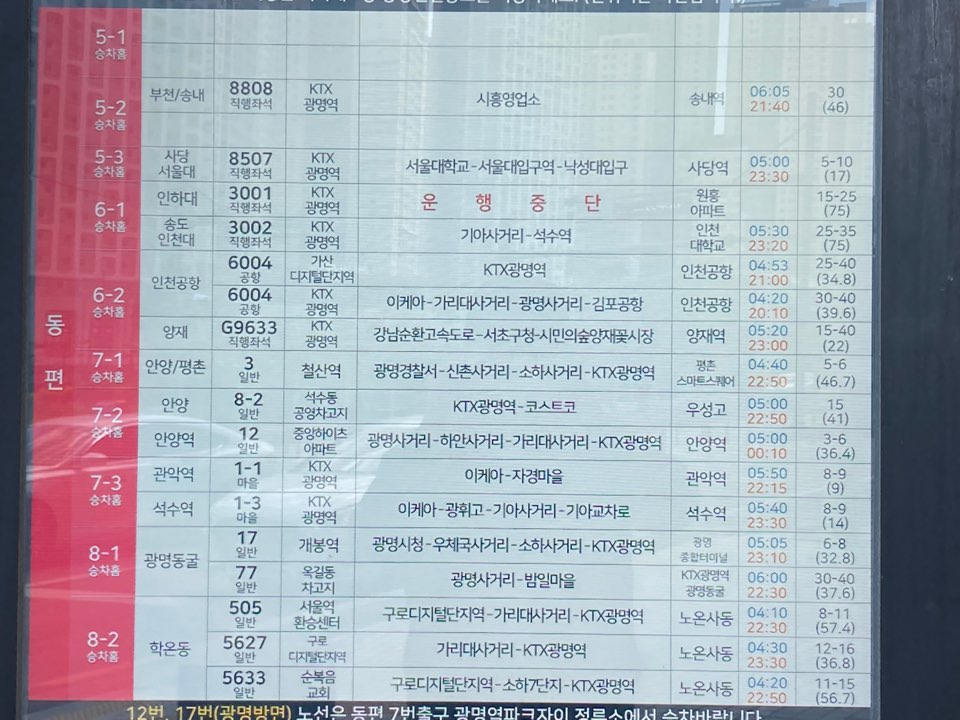 동편
5-1
승차홈
5-2
승차홈
부천/송내 8808 직행좌석 KTX 광명역 시흥영업소 송내역 06:05 21:40 30 (46)
5-3
승차홈
사당 서울대 8507 직행좌석 KTX 광명역 서울대학교-서울대입구역-낙성대입구 사당역 05:00 23:30 5-10 (17)
6-1
승차홈
인하대 3001 직행좌석 KTX 광명역 운 행 중 단 원흥 아파트 15-25 (75)
송도 인천대 3002 직행좌석 KTX 광명역 기아사거리-석수역 인천 대학교 05:30 23:20 25-35 (75)
6-2
승차홈
인천공항 6004 공항 가산 디지털단지역 KTX광명역 인천공항 04:53 21:00 25-40 (34.8)
6004 공항 KTX 광명역 이케아-가리대사거리-광명사거리-김포공항 인천공항 04:20 20:10 30-40 (39.6)
양재 G9633 직행좌석 KTX 광명역 강남순환고속도로-서초구청-시민의숲양재꽃시장 양재역 05:20 23:00 15-40 (22)
7-1
승차홈
안양/평촌 3 일반 철산역 광명경찰서-신촌사거리-소하사거리-KTX광명역 평촌 스마트스퀘어 04:40 22:50 5-6 (46.7)
7-2
승차홈
안양 8-2 일반 석수동 공영차고지 KTX광명역-코스트코 우성고 05:00 22:50 15 (41)
안양역 12 일반 중앙하이츠 아파트 광명사거리-하안사거리-가리대사거리-KTX광명역 안양역 05:00 00:10 3-6 (36.4)
7-3
승차홈
관악역 1-1 마을 KTX 광명역 이케아-자경마을 관악역 05:50 22:15 8-9 (9)
석수역 1-3 마을 KTX 광명역 이케아-광휘고-기아사거리-기아교차로 석수역 05:40 23:30 8-9 (14)
8-1
승차홈
광명동굴 17 일반 개봉역 광명시청-우체국사거리-소하사거리-KTX광명역 광명 종합터미널 05:05 23:10 6-8 (32.8)
77 일반 옥길동 차고지 광명사거리-밤일마을 KTX광명역 광명동굴 06:00 22:30 30-40 (37.6)
8-2
승차홈
학온동 505 일반 서울역 환승센터 구로디지털단지역-가리대사거리-KTX광명역 노온사동 04:10 22:30 8-11 (57.4)
5627 일반 구로 디지털단지역 가리대사거리-KTX광명역 노온사동 04:30 23:30 12-16 (36.8)
5633 일반 순복음 교회 구로디지털단지역-소하7단지-KTX광명역 노온사동 04:20 22:50 11-15 (56.7)
12번, 17번(광명방면) 노선은 동편 7번출구 광명역파크자이 정류소에서 승차바랍니다